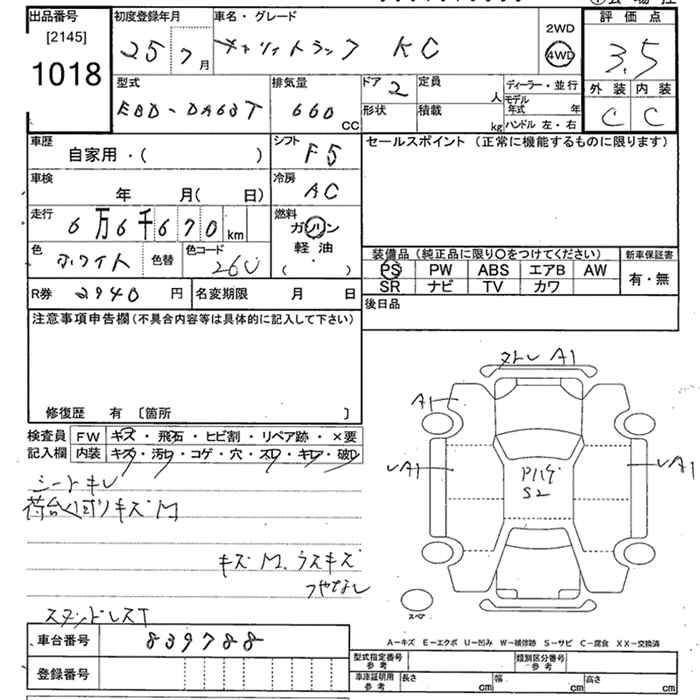 出品番号 初度登録年月 車名・グレード 評価点
[2145]
1018
25 7月 キャリイトラック KC
2WD
4WD
3.5
外装 内装
C C
型式 排気量 ドア 2 定員 人 ディーラー・並行
EBD-DA63T 660 CC
形状 積載 kg モデル年式 年
ハンドル 左・右
車歴 自家用・( )
シフト F5
セールスポイント (正常に機能するものに限ります)
車検 年 月( 日)
冷房 AC
走行 6万6千670km
燃料 ガソリン
軽油
( )
色 ホワイト 色替 色コード 26U
装備品 (純正品に限り○をつけてください) 新車保証書
PS PW ABS エアB AW 有・無
SR ナビ TV カワ
R券 2940円 名変期限 月 日
後日品
注意事項申告欄(不具合内容等は具体的に記入して下さい)
修復歴 有 〔箇所 〕
検査員 FW キズ・飛石・ヒビ割・リペア跡・×要
記入欄 内装 キズ・汚レ・コゲ・穴・スレ・キレ・破レ
シートキレ
キズM
キズM、ウスキズ
ツヤなし
A1
A1
A1
A1
S2
スペア
A−キズ E−エクボ U−凹み W−補修跡 S−サビ C−腐食 XX−交換済
車台番号 839788
登録番号
型式指定番号 参考 類別区分番号 参考
車庫証明用 参考 長さ cm 幅 cm 高さ cm